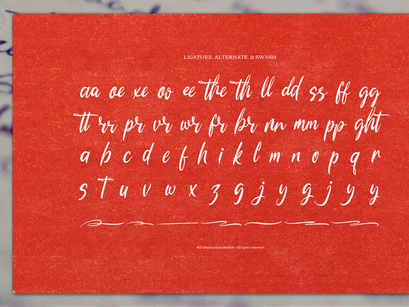 LIGATURE, ALTERNATE, & SWASH
aa oe xe oo ee the th ll dd ss ff gg
tt rr pr vr wr fr br nn mm pp ght
a b c d e f h i k l m n o p q r
s t u v w x z g j y g j y y